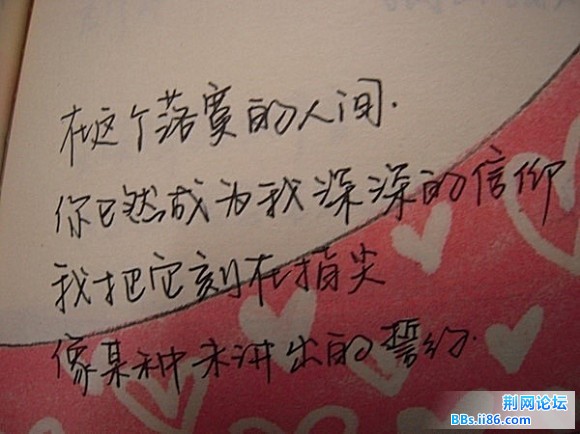 在这个落寞的人间.
你已然成为我深深的信仰
我把它刻在指尖
像某种未讲出的誓约.
荆网论坛
BBs.ii86.com